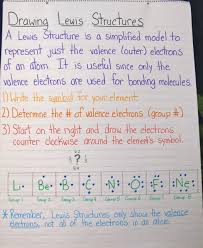 Drawing Lewis Structures
A Lewis Structure is a simplified model to
represent just the valence (outer) electrons
of an atom. It is useful since only the
valence electrons are used for bonding molecules.
1) Write the symbol for your element.
2) Determine the # of valence electrons (group #)
3) Start on the right and draw the electrons
counter clockwise around the element's symbol.
?
Li Be B C N O F Ne
* Remember, Lewis Structures only show the valence
electrons, not all of the electrons in an atom.